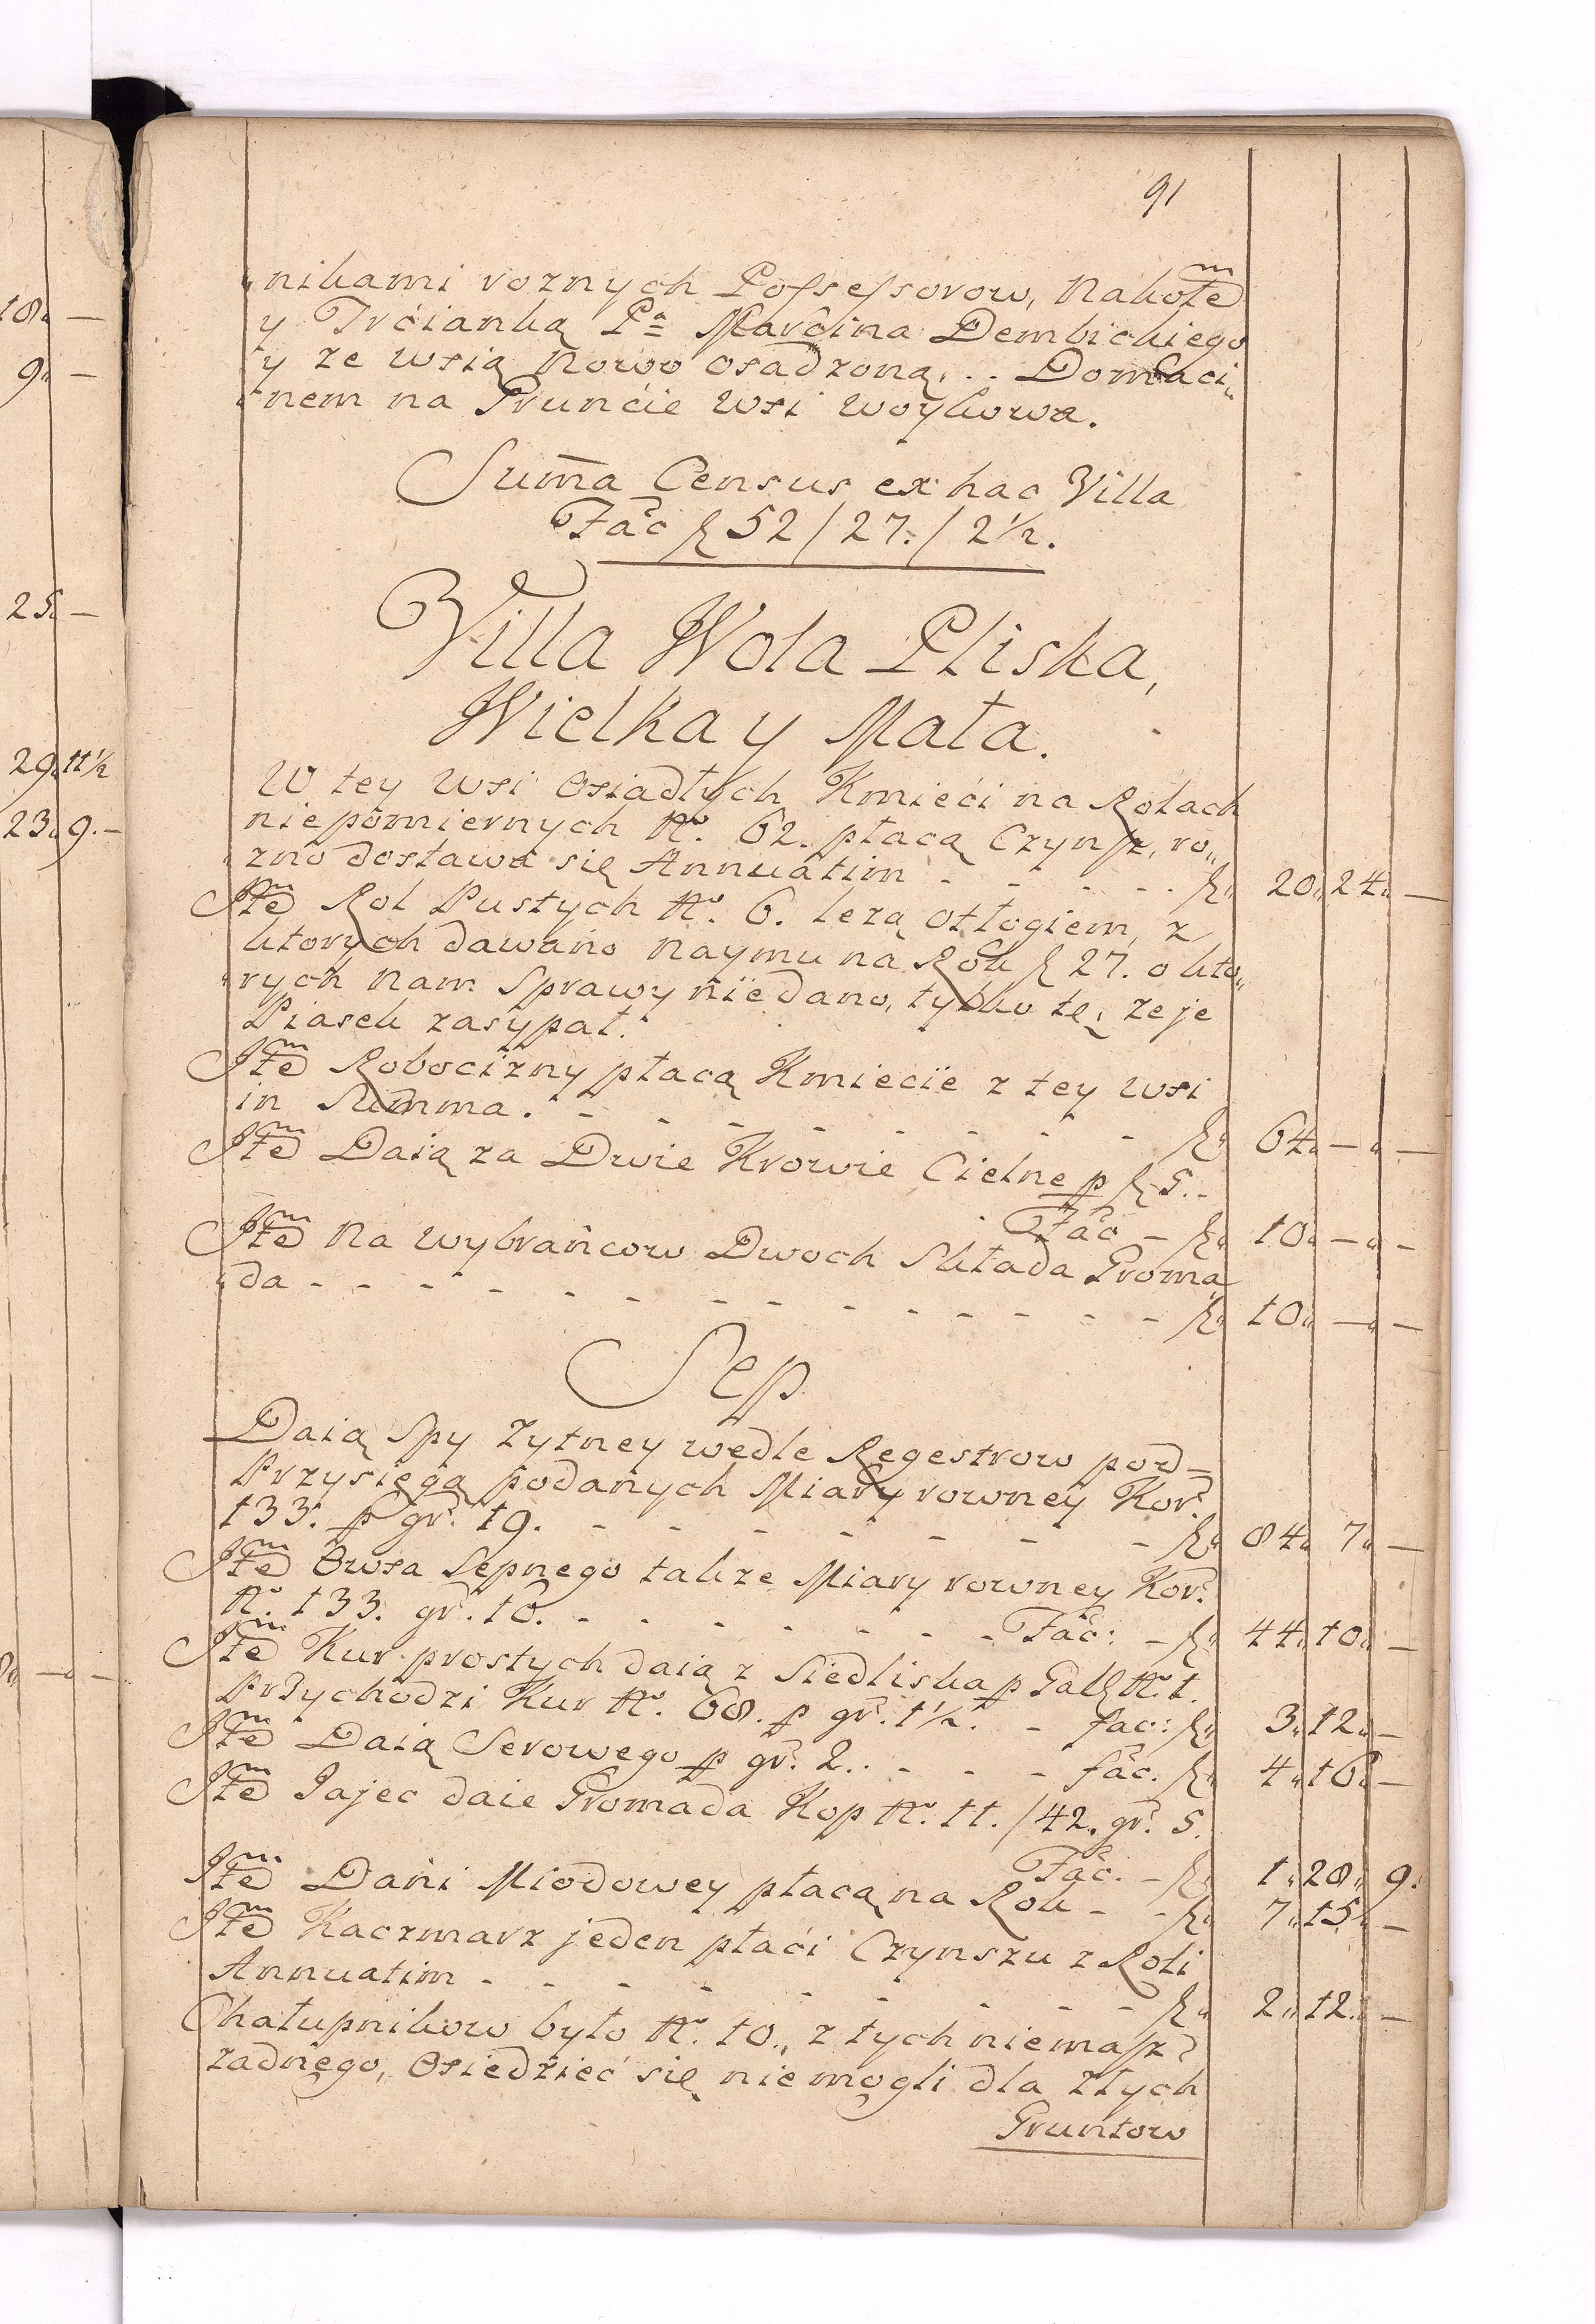 91
„nikami roznych Possessorow, nakoťe
y Trćianką Pa Marćina Dembickiego
y ze wsią nowo osadzoną, .. Domaci„
„nem na Grunćie wsi woykowa.
Sum̄a Census ex hac Villa
Fac̃ f 52/27./2½.
Villa Wola Pliska,
Wielka y Mała.
W tey wsi Osiadłych Kmieći na Rolach
niepomiernych No. 62. płacą Czynsz, ro„
„zno dostawa się Annuatim - - - - - f„ 20„ 24„ —
Item̃ Rol Pustych No. 6. lezą Odłogiem, z
ktorych dawano naymu na Rok f 27. o kto„
„rych nam Sprawy niedano, tylko tę, ze je
Piasek zasypał.
Item̃ Robocizny płacą Kmiecie z tey wsi
in Summa. - - - - - - - - - f„ 64„ —„ —
Item̃ Daią za Dwie Krowie Cielne p f 5.-
Fac̃ - f„ 10„ —„ -
Item̃ na wybrańcow Dwoch Składa Groma
„da - - - - - - - - - - - - - - f„ 10„ —„ —
Sep
Daią Spy Zytney wedle Regestrow pod-
Przysięgą podanych Miary rowney Kor:
133. p gr. 19. - - - - - - - - f„ 84„ 7„ —
Item̃ Owsa Sepnego takze Miary rowney Kor:
No. 133. gr. 10. - - - - - - Fac̃: - f„ 44„ 10„ —
Item̃ Kur prostych daią z Siedliska p Gall No. 1.
Przychodzi Kur No. 68. p gr. 1½. - fac: f„ 3„ 12„ —
Item̃ Daią Serowego p gr. 2.. - - - fac̃. f„ 4„ 16„ —
Item̃ Jajec daie Gromada Kop No. 11./42. gr. 5.
Fac̃. - f„ 1„ 28„ 9.
Item̃ Dani Miodowey płacą na Rok - - f„ 7„ 15„ —
Item̃ Kaczmarz jeden płaći Czynszu z Roli
Annuatim - - - - - - - - - f„ 2„ 12„ —
Chałupnikow było No. 10., z tych niemasz
zadnego, Osiedzieć się niemogli dla Złych
Gruntow
18„ —
9„ —
25„ —
29„ 11½
23„ 9. -